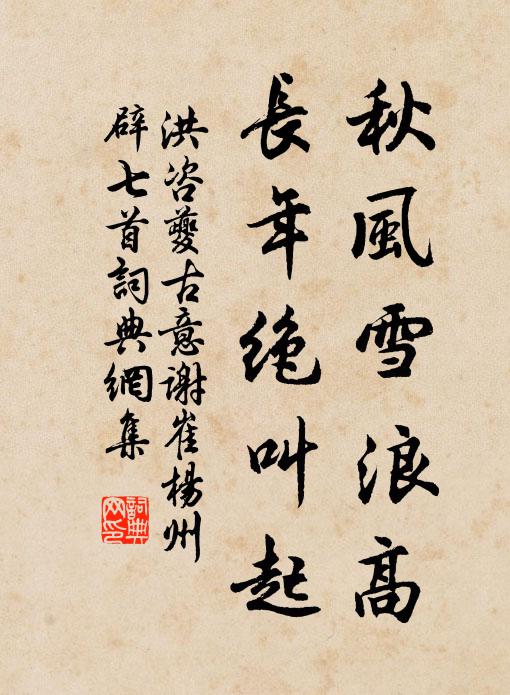 秋風雪浪高
長年絶叫起
洪咨夔古意謝崔楊州
辟七首詞典網集
詞典網印